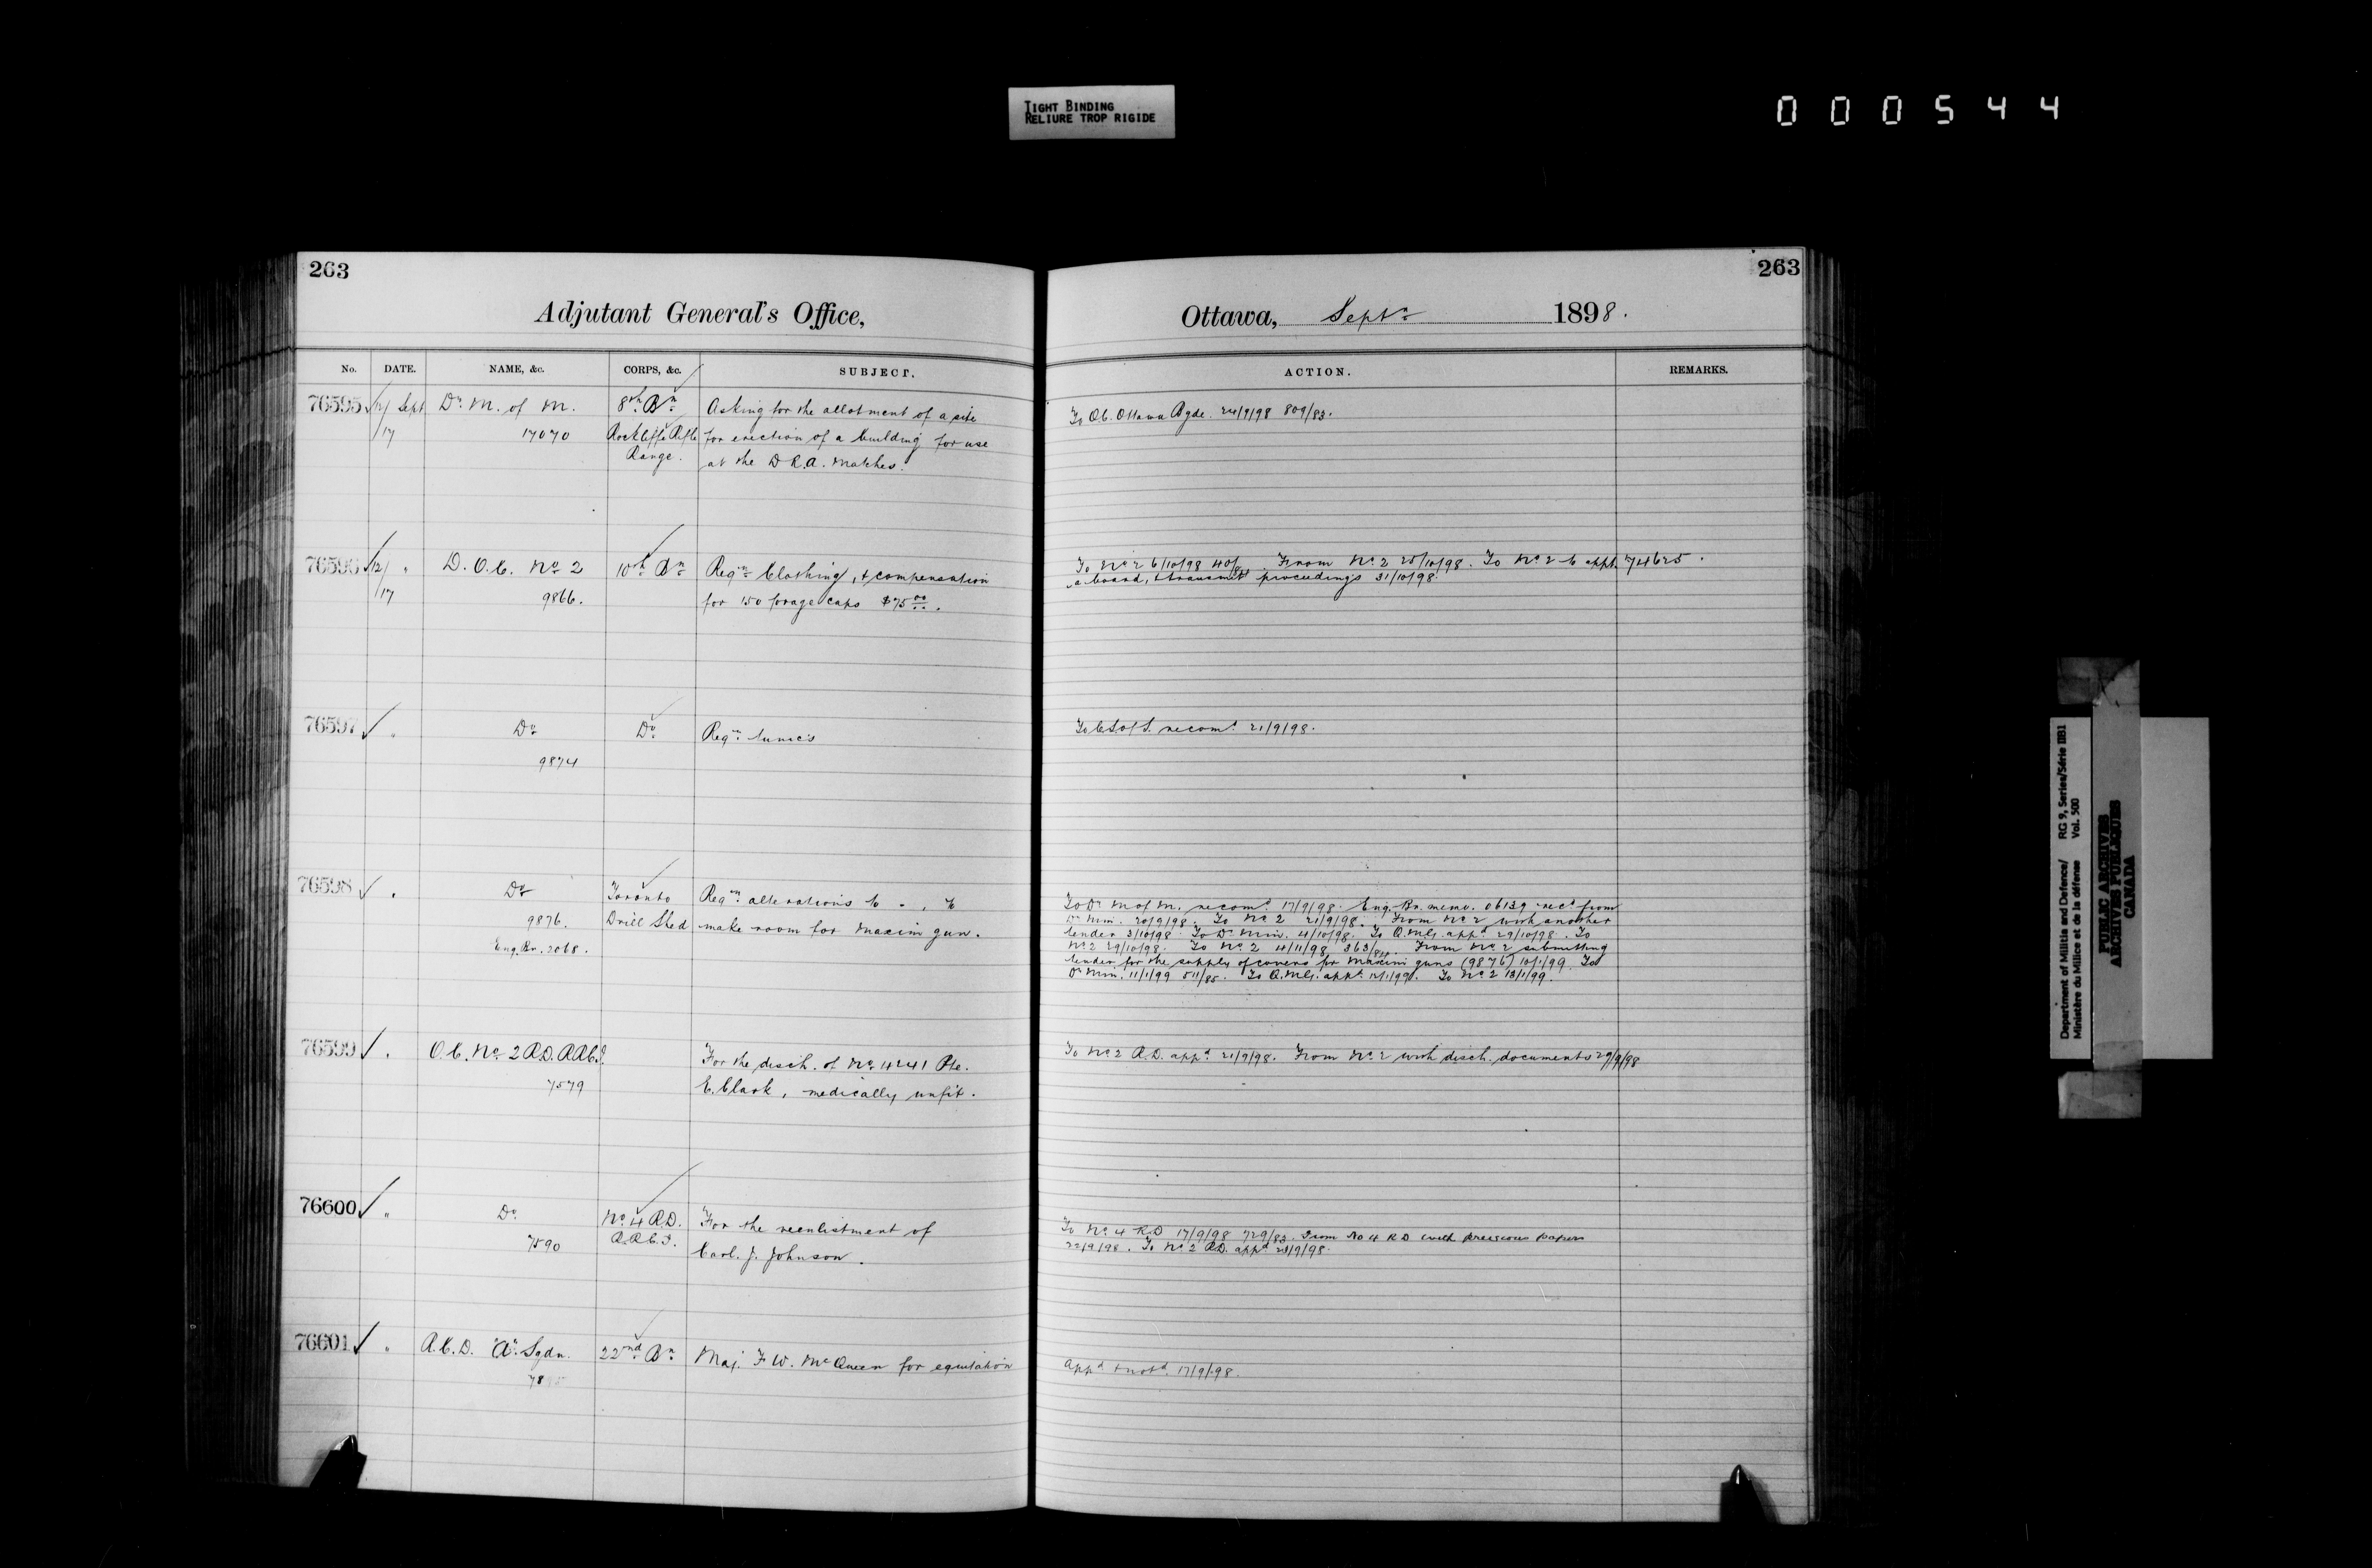 TIGHT BINDING
RELIURE TROP RIGIDE
000544
263
Adjutant General's Office,
No. DATE. NAME, &c. CORPS, &c. SUBJECT.
76595 12/ Sept Dr. M. of M. 8th Bn Asking for the allotment of a site
/17 17070 Rockliffe Rifle for erection of a building for use
Range. at the D.R.A. matches.
76596 12/ " D.O.C. No 2 10th Bn Reqn Clothing, & compensation
/17 9866. for 150 forage caps $75 00.
76597 " Do Do Reqn tunics
9874
76598 " Do Toronto Reqn alterations to - , to
9876. Drill Shed make room for maxim gun.
Eng. Br. 2068.
76599 " O.C. No 2 R.D. R.R.C.I. For the disch. of No 4241 Pte.
7579 E. Clark, medically unfit.
76600 " Do No 4 R.D. For the reenlistment of
7590 R.R.C.I. Carl. J. Johnson.
76601 " R.C.D. "A" Sqdn. 22nd Bn Maj. F. W. McQueen for equitation
78
263
Ottawa, Septr 1898.
ACTION. REMARKS.
To O.C. Ottawa Bgde. 24/9/98 809/83.
To No 2 6/10/98 40/84. From No 2 25/10/98. To No 2 to appt. 74625.
a board, & transmit proceedings 31/10/98.
To C.S. of S. recomd 21/9/98.
To Dr M of M. recomd 17/9/98. Eng. Br. memo. 06139 recd from
Dr Min. 20/9/98. To No 2 21/9/98. From No 2 with another
tender 3/10/98. To Dr Min. 4/10/98. To Q.M.G. appd 29/10/98. To
No 2 29/10/98. To No 2 4/11/98 363/84. From No 2 submitting
tender for the supply of covers for Maxim guns (9876) 10/1/99. To
Dr Min. 11/1/99 511/85. To Q.M.G. appd 12/1/99. To No 2 13/1/99.
To No 2 R.D. appd 21/9/98. From No 2 with disch. documents 29/9/98
To No 4 R.D 17/9/98 729/83. From No 4 R D with previous papers
22/9/98. To No 2 R.D. appd 23/9/98.
Appd & notd. 17/9/98.
Department of Militia and Defence/ RG 9, Series/Série IIB1
Ministère du Milice et de la défense Vol. 500
PUBLIC ARCHIVES
ARCHIVES PUBLIQUES
CANADA